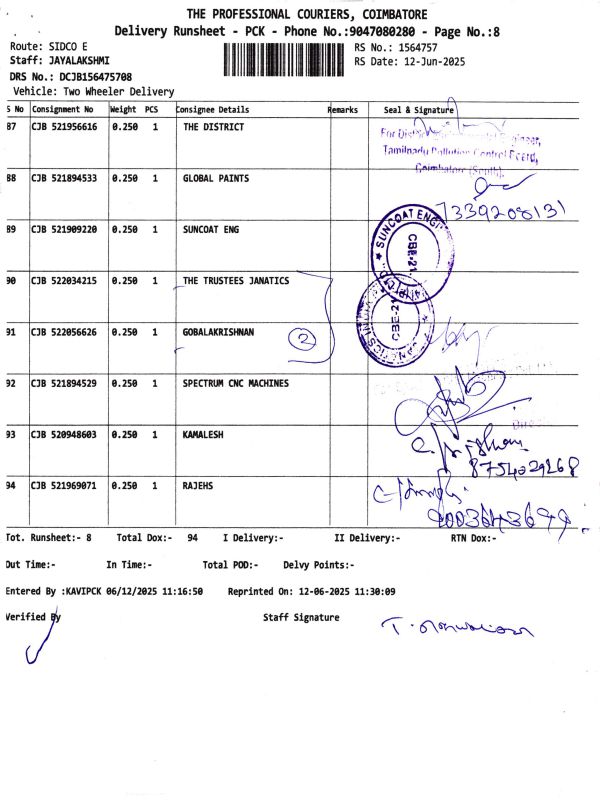 THE PROFESSIONAL COURIERS, COIMBATORE
Delivery Runsheet - PCK - Phone No.:9047080280 - Page No.:8
Route: SIDCO E
RS No.: 1564757
Staff: JAYALAKSHMI
RS Date: 12-Jun-2025
DRS No.: DCJB156475708
Vehicle: Two Wheeler Delivery
S No Consignment No Weight PCS Consignee Details Remarks Seal & Signature
87 CJB 521956616 0.250 1 THE DISTRICT
Tamilnadu Pollution Control Board,
Coimbatore (South).
88 CJB 521894533 0.250 1 GLOBAL PAINTS
7339208131
89 CJB 521909220 0.250 1 SUNCOAT ENG
SUNCOAT ENG
CBE-21
90 CJB 522034215 0.250 1 THE TRUSTEES JANATICS
CBE-21
91 CJB 522056626 0.250 1 GOBALAKRISHNAN 2
92 CJB 521894529 0.250 1 SPECTRUM CNC MACHINES
93 CJB 520948603 0.250 1 KAMALESH
8754029268
94 CJB 521969071 0.250 1 RAJEHS
9003643699
Tot. Runsheet:- 8 Total Dox:- 94 I Delivery:- II Delivery:- RTN Dox:-
Out Time:- In Time:- Total POD:- Delvy Points:-
Entered By :KAVIPCK 06/12/2025 11:16:50 Reprinted On: 12-06-2025 11:30:09
Verified By Staff Signature